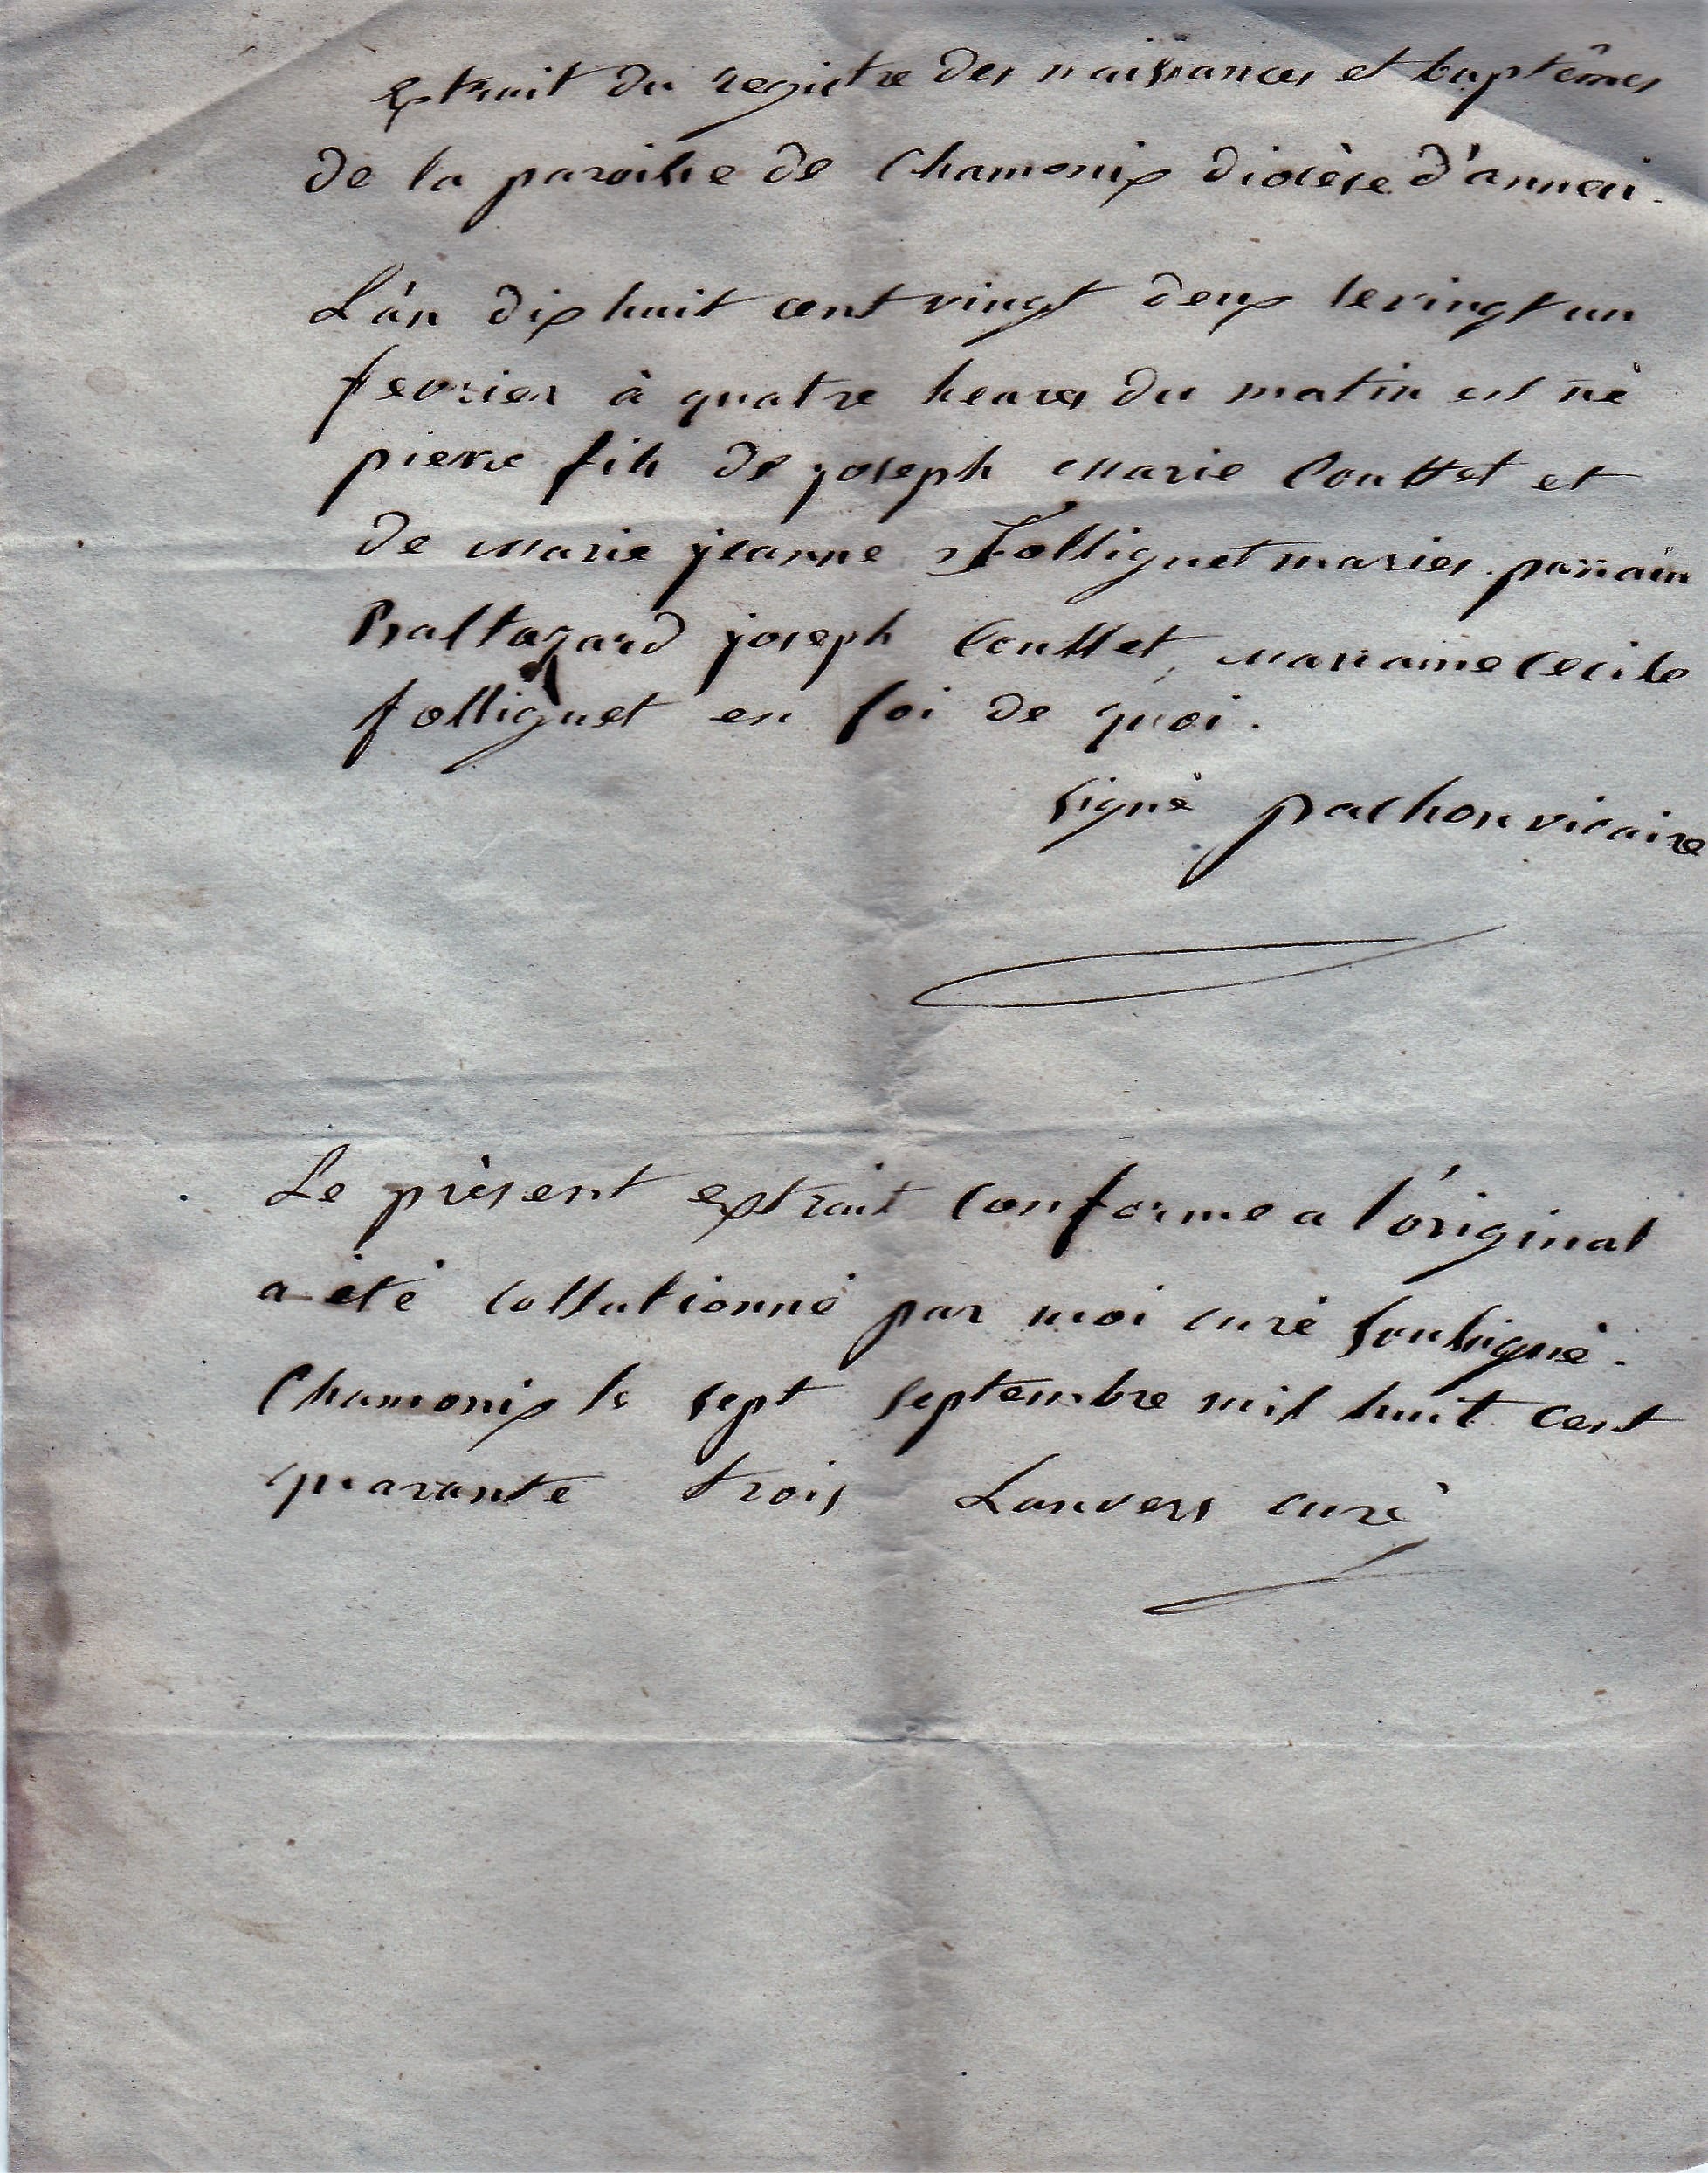 extrait du registre des naissances et baptêmes
de la paroisse de Chamonix diocèse d'anneci.
L'an dix huit cent vingt deux le vingt un
fevrier à quatre heures du matin est né
pierre fils de joseph marie Couttet et
de marie jeanne folliguet mariés. parrain
Baltazard joseph Couttet, marraine Cecile
folliguet en foi de quoi.
signé pachon vicaire
Le présent extrait conforme a l'original
a été collationné par moi curé soussigné.
Chamonix le sept septembre mil huit cent
quarante trois Lanvers curé